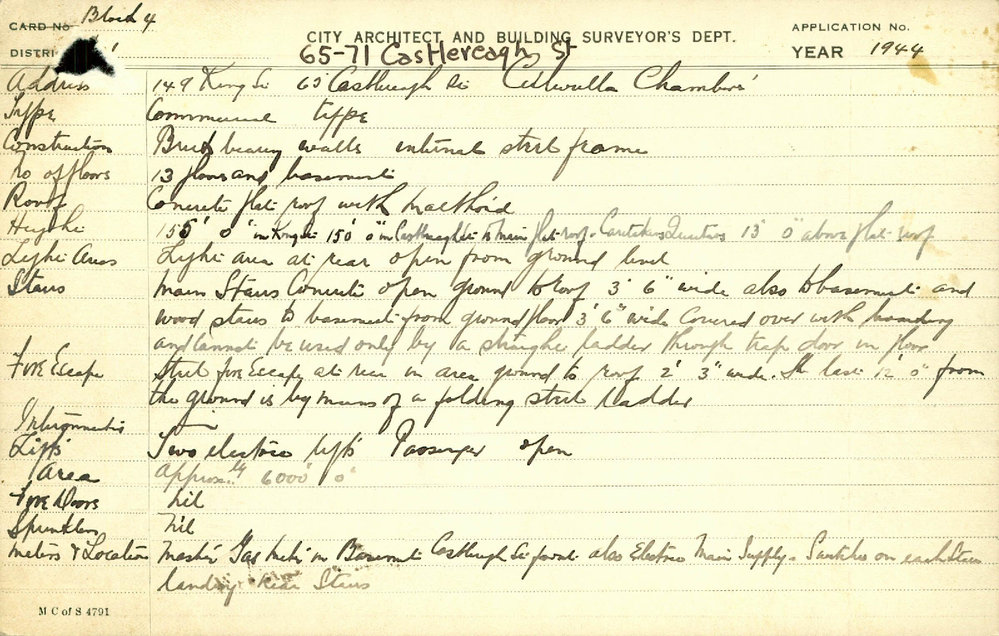 CARD No Block 4
CITY ARCHITECT AND BUILDING SURVEYOR'S DEPT.
APPLICATION No.
DISTRI
65-71 Castlereagh St
YEAR 1944
Address 149 King St 65 Castlereagh St Chambers
Type Commercial type
Construction Brick bearing walls internal steel frame
No of floors 13 floors and basement
Roof Concrete flat roof with malthoid
Height 155' 0" in King St 150' 0" in Castlereagh St to main flat roof. Caretakers Quarters 13' 0" above flat roof
Light Areas Light area at rear open from ground level
Stairs Main Stairs Concrete open ground to roof 3' 6" wide also to basement and
wood stairs to basement from ground floor 3' 6" wide Covered over with boarding
and cannot be used only by a straight ladder through trap door in floor
Fire Escape Steel fire Escape at rear in area ground to roof 2' 3" wide. The last 12' 0" from
the ground is by means of a folding steel ladder
Lifts Two electric lifts Passenger open
Area Approx. 6000' 0"
Fire Doors Nil
Sprinklers Nil
Meters & Location Master Gas Meter in Basement Castlereagh St front also Electric Main Supply. Switches on each
landing rear Stairs
M C of S 4791